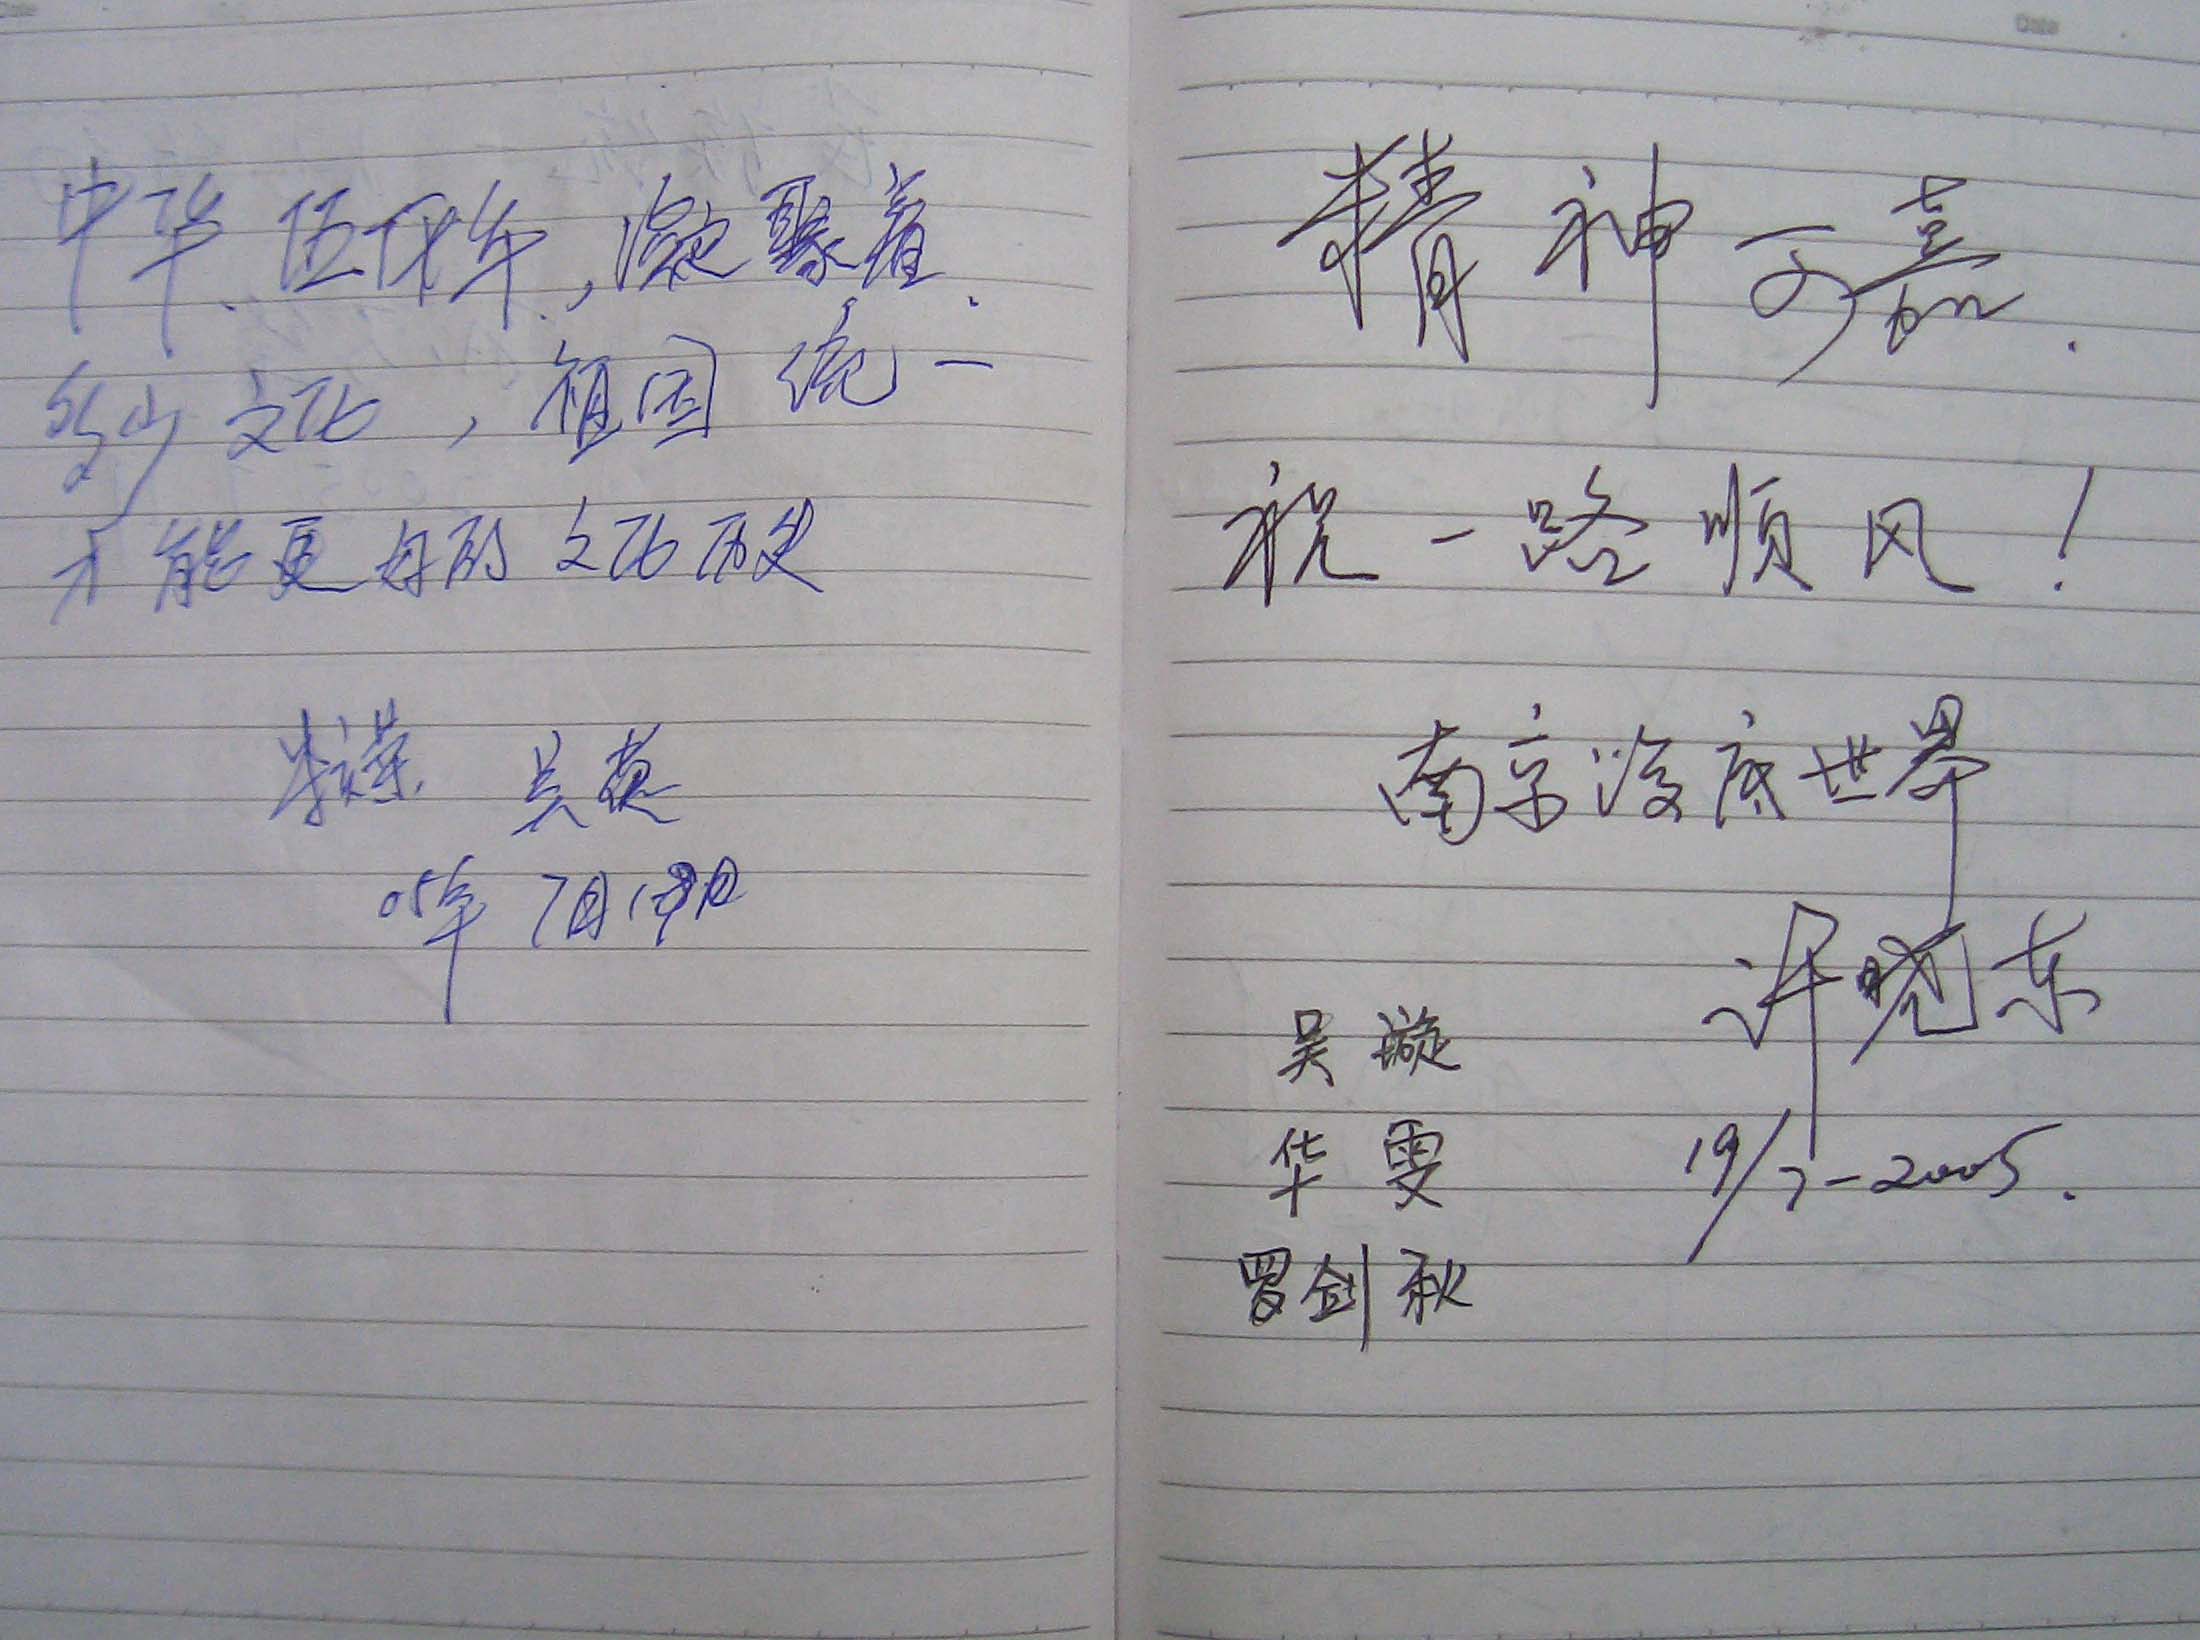 中华伍仟年，凝聚着
文化，祖国统一
才能更好的文化历史
吴英
05年7月19日
精神可嘉.
祝一路顺风！
南京海底世界
许晓东
吴漩
华雯
19/7-2005.
罗剑秋